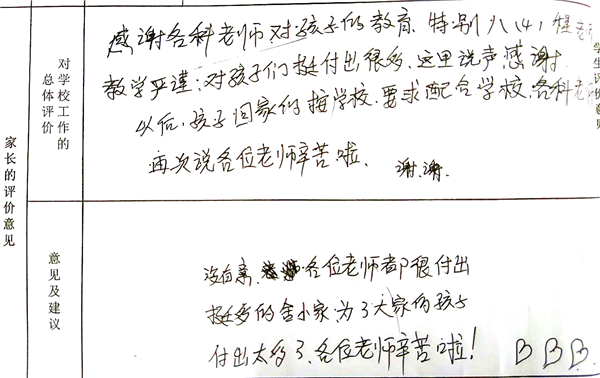 家长的评价意见
对学校工作的总体评价
感谢各科老师对孩子的教育.特别八(4)班老师
教学严谨:对孩子们挺付出很多.这里说声感谢.
以后,孩子回家们按学校.要求配合学校.各科老师
再次说各位老师辛苦啦、 谢.谢.
学生评价意见
意见及建议
各位老师都很付出
挺多的舍小家为了大家的孩子
付出太多了、各位老师辛苦啦!
BBB